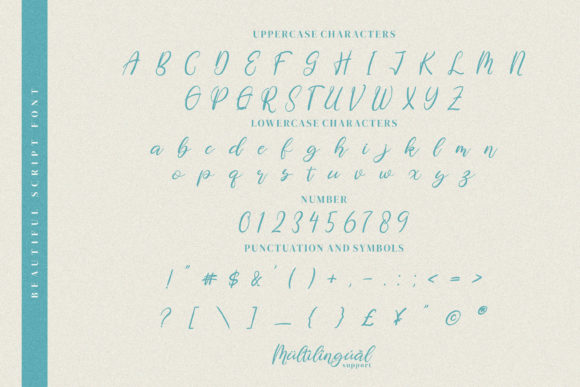 BEAUTIFUL SCRIPT FONT
UPPERCASE CHARACTERS
A B C D E F G H I J K L M N
O P Q R S T U V W X Y Z
LOWERCASE CHARACTERS
a b c d e f g h i j k l m n
o p q r s t u v w x y z
NUMBER
0 1 2 3 4 5 6 7 8 9
PUNCTUATION AND SYMBOLS
! " # $ & ' ( ) + , - . : ; < = >
? [ \ ] _ { } £ ¥ " © ®
Multilingual
support